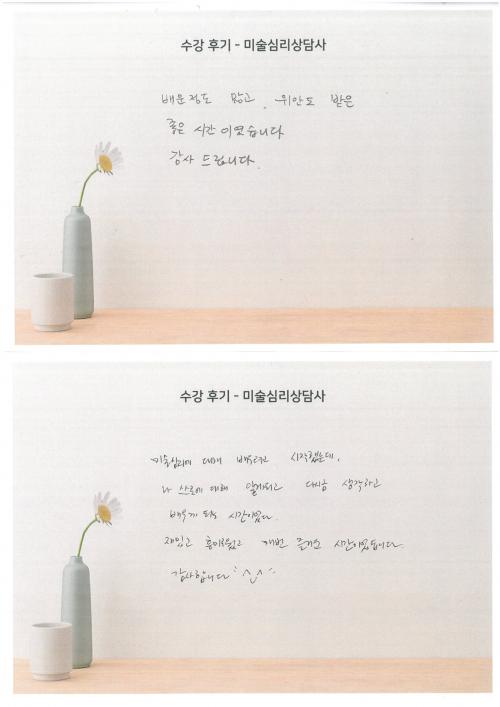 수강 후기 - 미술심리상담사
배운점도 많고, 위안도 받은
좋은 시간이였습니다
감사 드립니다.
수강 후기 - 미술심리상담사
미술심리에 대해 배우려고 시작했는데,
나 스스로에 대해 알게되고 다시금 생각하고
배우게 되는 시간이었다.
재밌고 흥미로웠고 매번 즐거운 시간이었습니다.
감사합니다 ^^